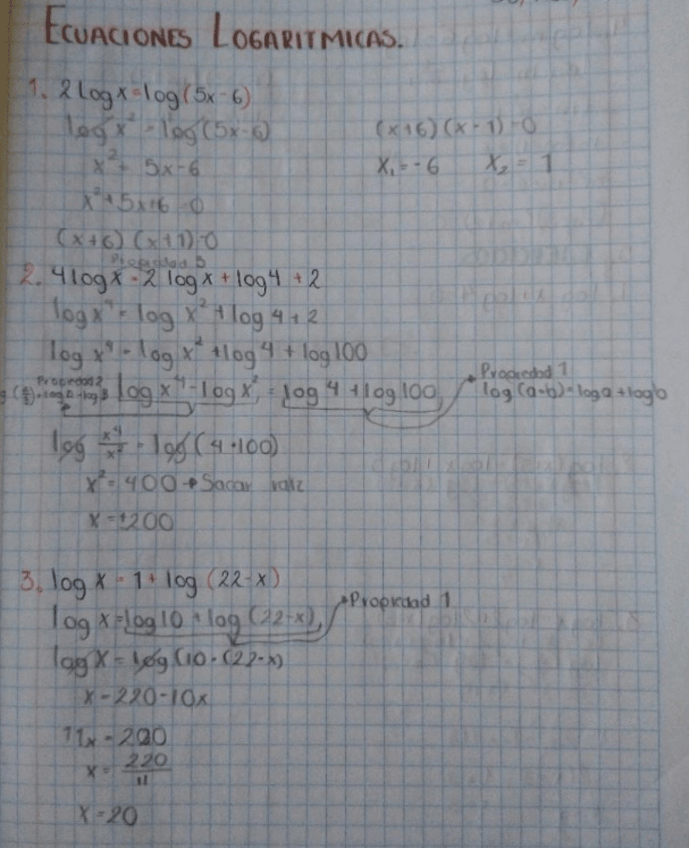 ECUACIONES LOGARITMICAS.
1. 2 log x = log (5x - 6)
log x² = log (5x - 6)
x² = 5x - 6
x² + 5x + 6 = 0
(x+6) (x+1) = 0
(x+6) (x-1) = 0
x₁ = -6 x₂ = 1
Propiedad 3
2. 4 log x = 2 log x + log 4 + 2
log x⁴ = log x² + log 4 + 2
log x⁴ = log x² + log 4 + log 100
Propiedad 2
log x⁴ - log x² = log 4 + log 100
Propiedad 1
log (a·b) = log a + log b
log x⁴/x² = log (4·100)
x² = 400 → Sacar raiz
x = ±200
3. log x = 1 + log (22 - x)
log x = log 10 + log (22 - x)
Propiedad 1
log x = log (10 · (22 - x)
x = 220 - 10x
11x = 220
x = 220/11
x = 20